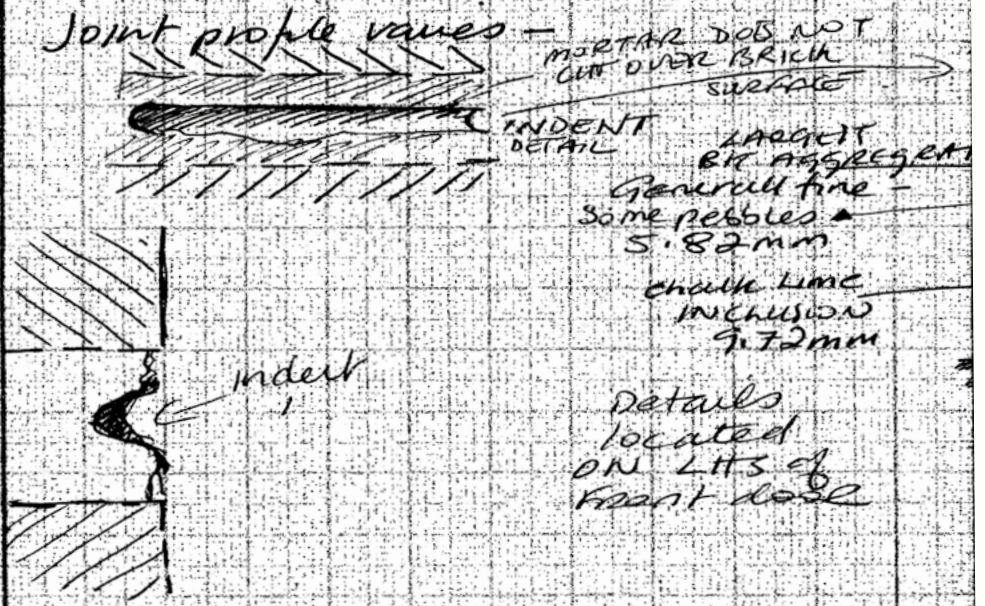 Joint profile varies -
MORTAR DOES NOT
CUT OVER BRICK
SURFACE
INDENT
DETAIL
LARGEST
BIT AGGREGAT
Generall fine -
Some pebbles
5.82mm
chalk Lime
INCLUSION
9.72mm
indent
Details
located
ON LHS of
Front door